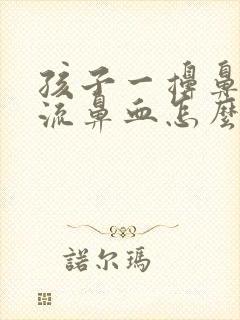 孩子一擤鼻
流鼻血怎麽
諾尔瑪